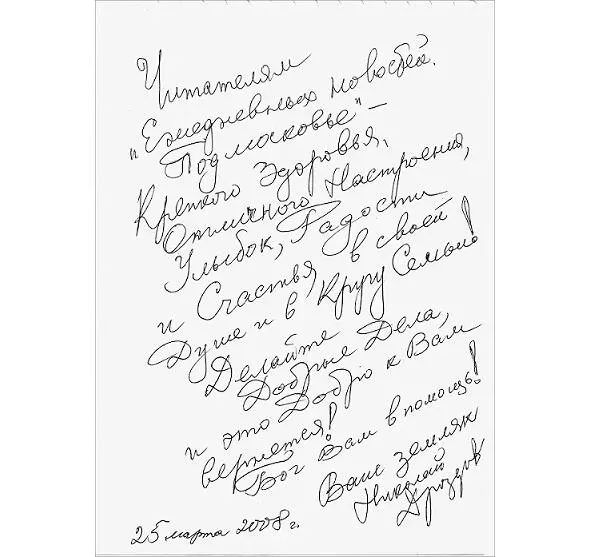 Читателям
"Ежедневных новостей.
Подмосковье" –
Крепкого Здоровья,
Отличного Настроения,
Улыбок, Радости
и Счастья в своей
Душе и в Кругу Семьи!
Делайте
Добрые Дела,
и это Добро к Вам
вернется!
Бог Вам в помощь!
Ваш земляк
Николай
Дроздов
25 марта 2008 г.